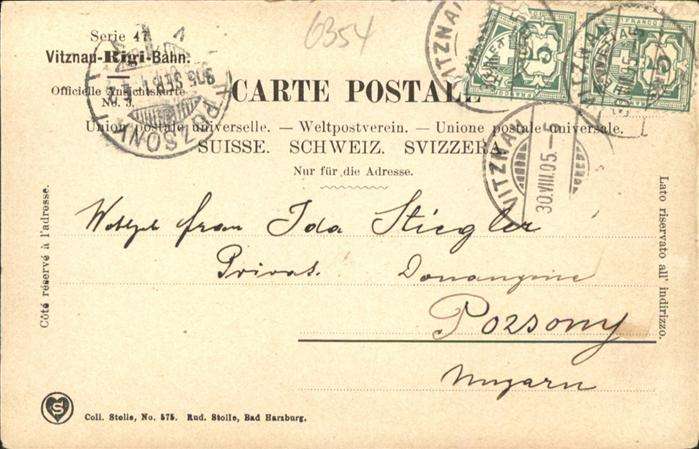 Serie 47
6354
Vitznau-Rigi-Bahn.
Officielle Ansichtskarte
No. 3.
CARTE POSTALE
Union postale universelle. — Weltpostverein. — Unione postale universale.
SUISSE. SCHWEIZ. SVIZZERA.
Nur für die Adresse.
POZSONY
VITZNAU
30.VIII.05.-5
VITZNAU
5
5
Côté réservé à l'adresse.
Lato riservato all' indirizzo.
Frau Ida Stiegler
Privat.
Pozsony
Ungarn
S
Coll. Stolle, No. 575. Rud. Stolle, Bad Harzburg.